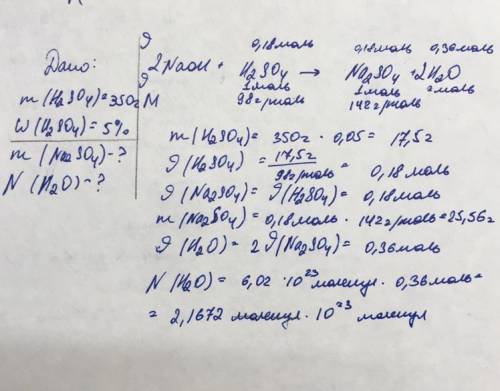 Дано:
m(H₂SO₄)=350г
W(H₂SO₄)=5%
m(Na₂SO₄)-?
N(H₂O)-?
ϑ 0,18моль 0,18моль 0,36моль
2NaOH + H₂SO₄ → Na₂SO₄ + 2H₂O
ϑ 1моль 1моль 2моль
M 98г/моль 142г/моль
m(H₂SO₄)= 350г · 0,05 = 17,5г
ϑ(H₂SO₄) = 17,5г / 98г/моль = 0,18 моль
ϑ(Na₂SO₄)= ϑ(H₂SO₄)= 0,18моль
m(Na₂SO₄)=0,18моль · 142г/моль=25,56г
ϑ(H₂O)= 2ϑ(Na₂SO₄)= 0,36моль
N(H₂O)= 6,02 · 10²³ молекул · 0,36моль=
= 2,1672 молекул · 10²³ молекул